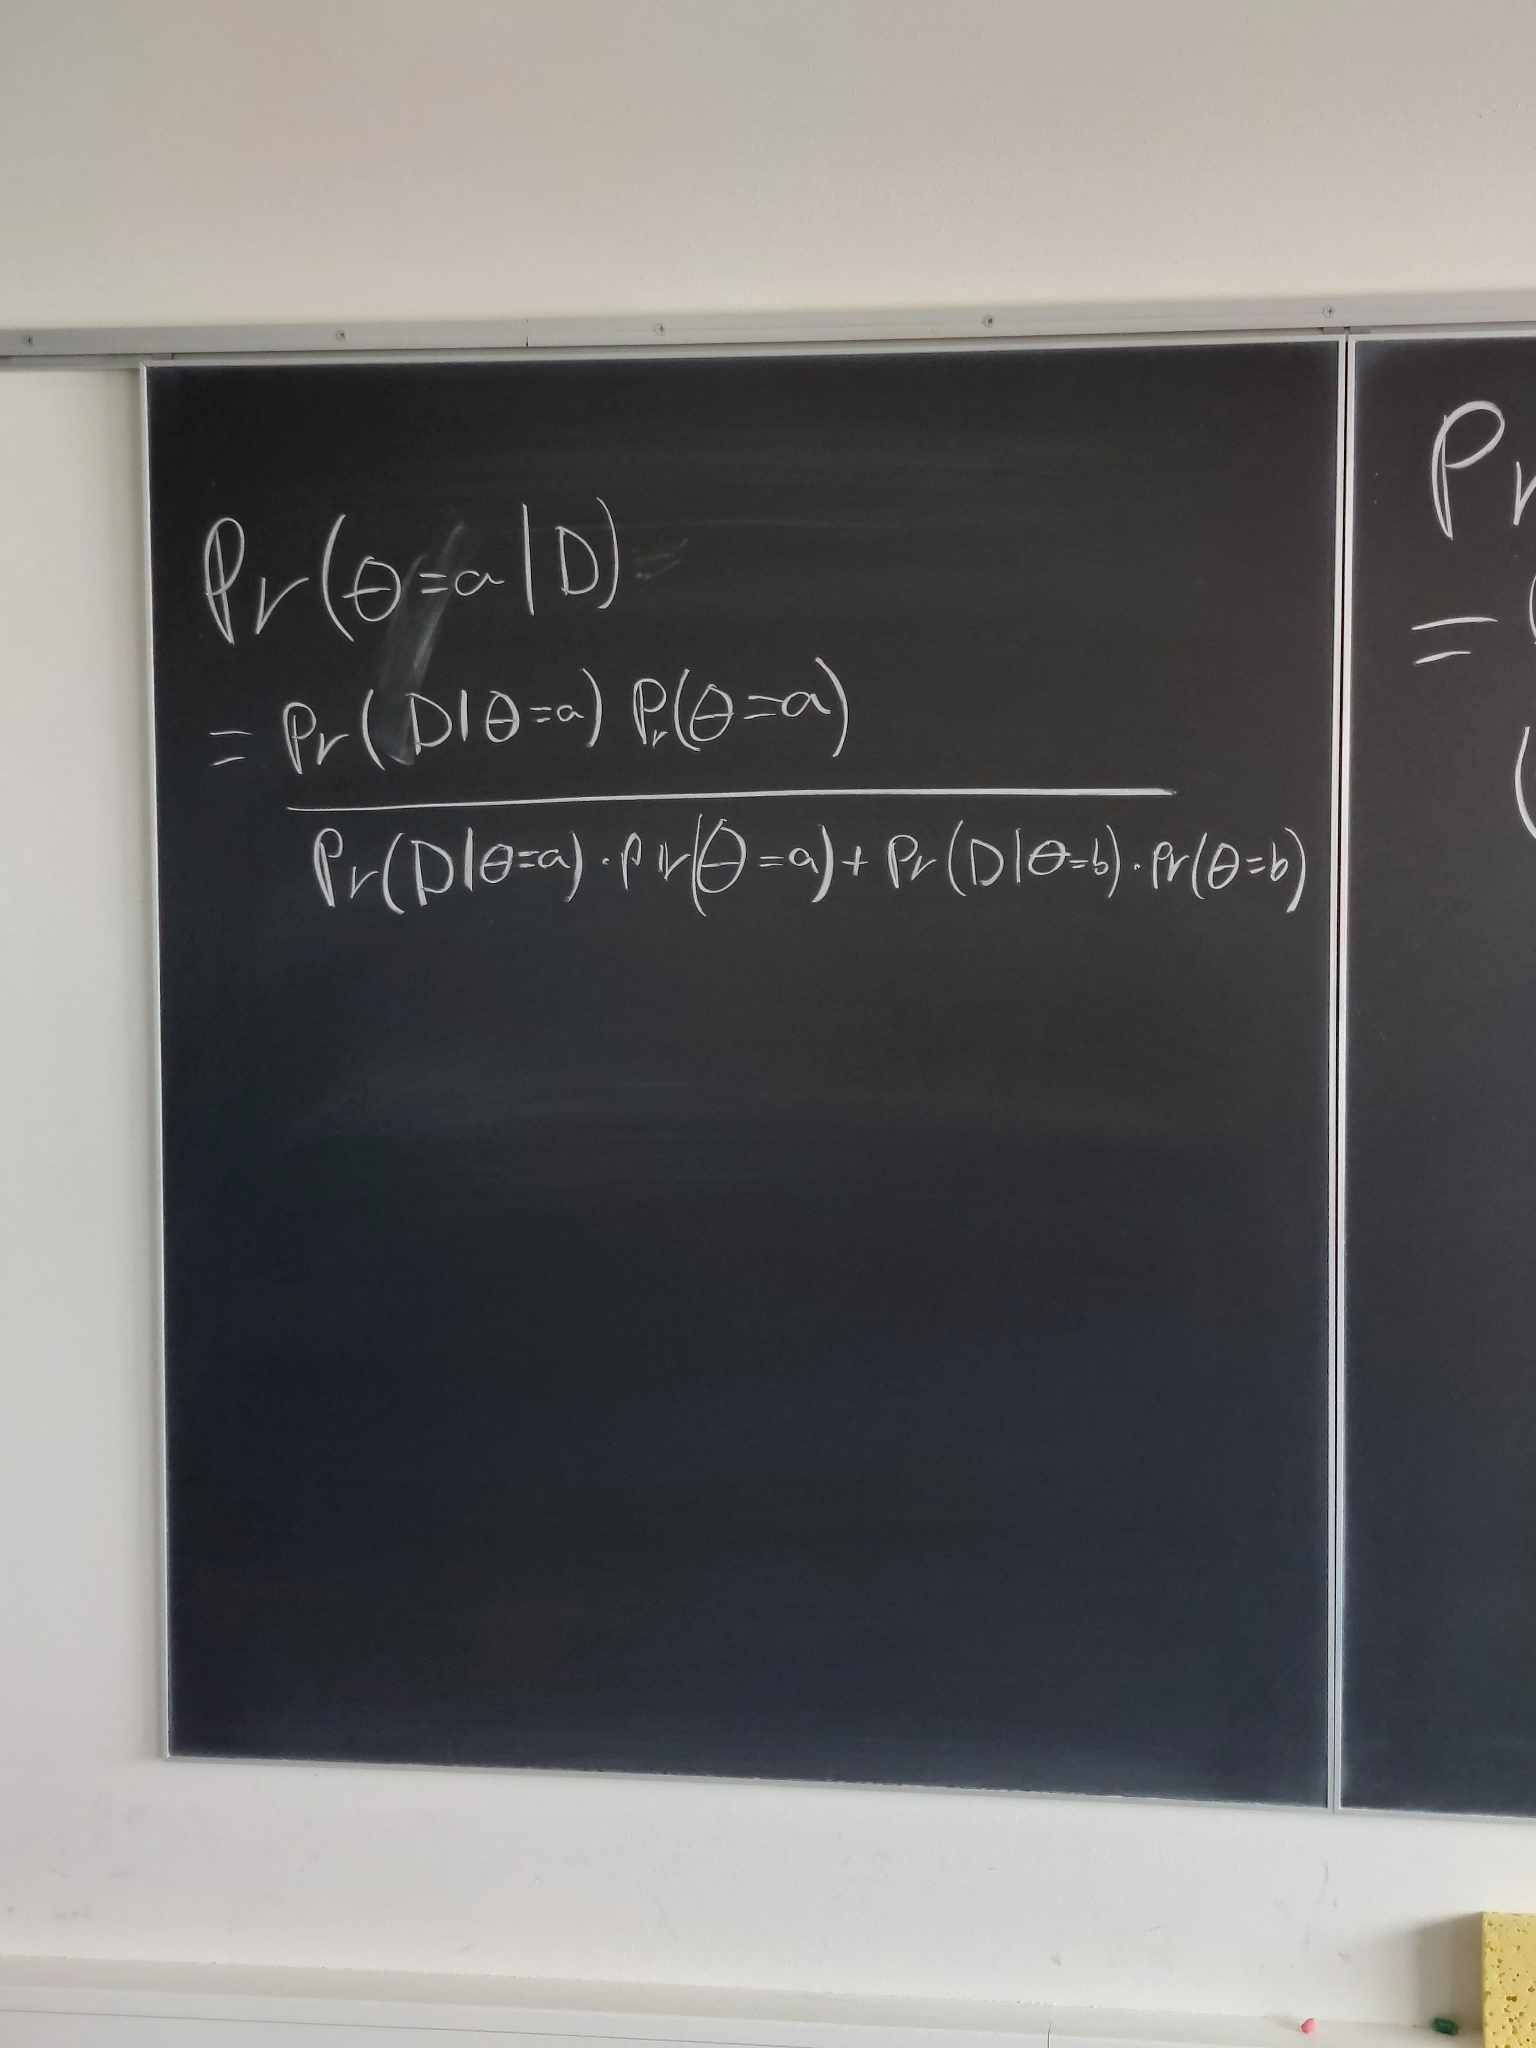 Pr(θ=a|D)
= Pr(D|θ=a) Pr(θ=a)
Pr(D|θ=a)·Pr(θ=a)+Pr(D|θ=b)·Pr(θ=b)
Pr
=
(